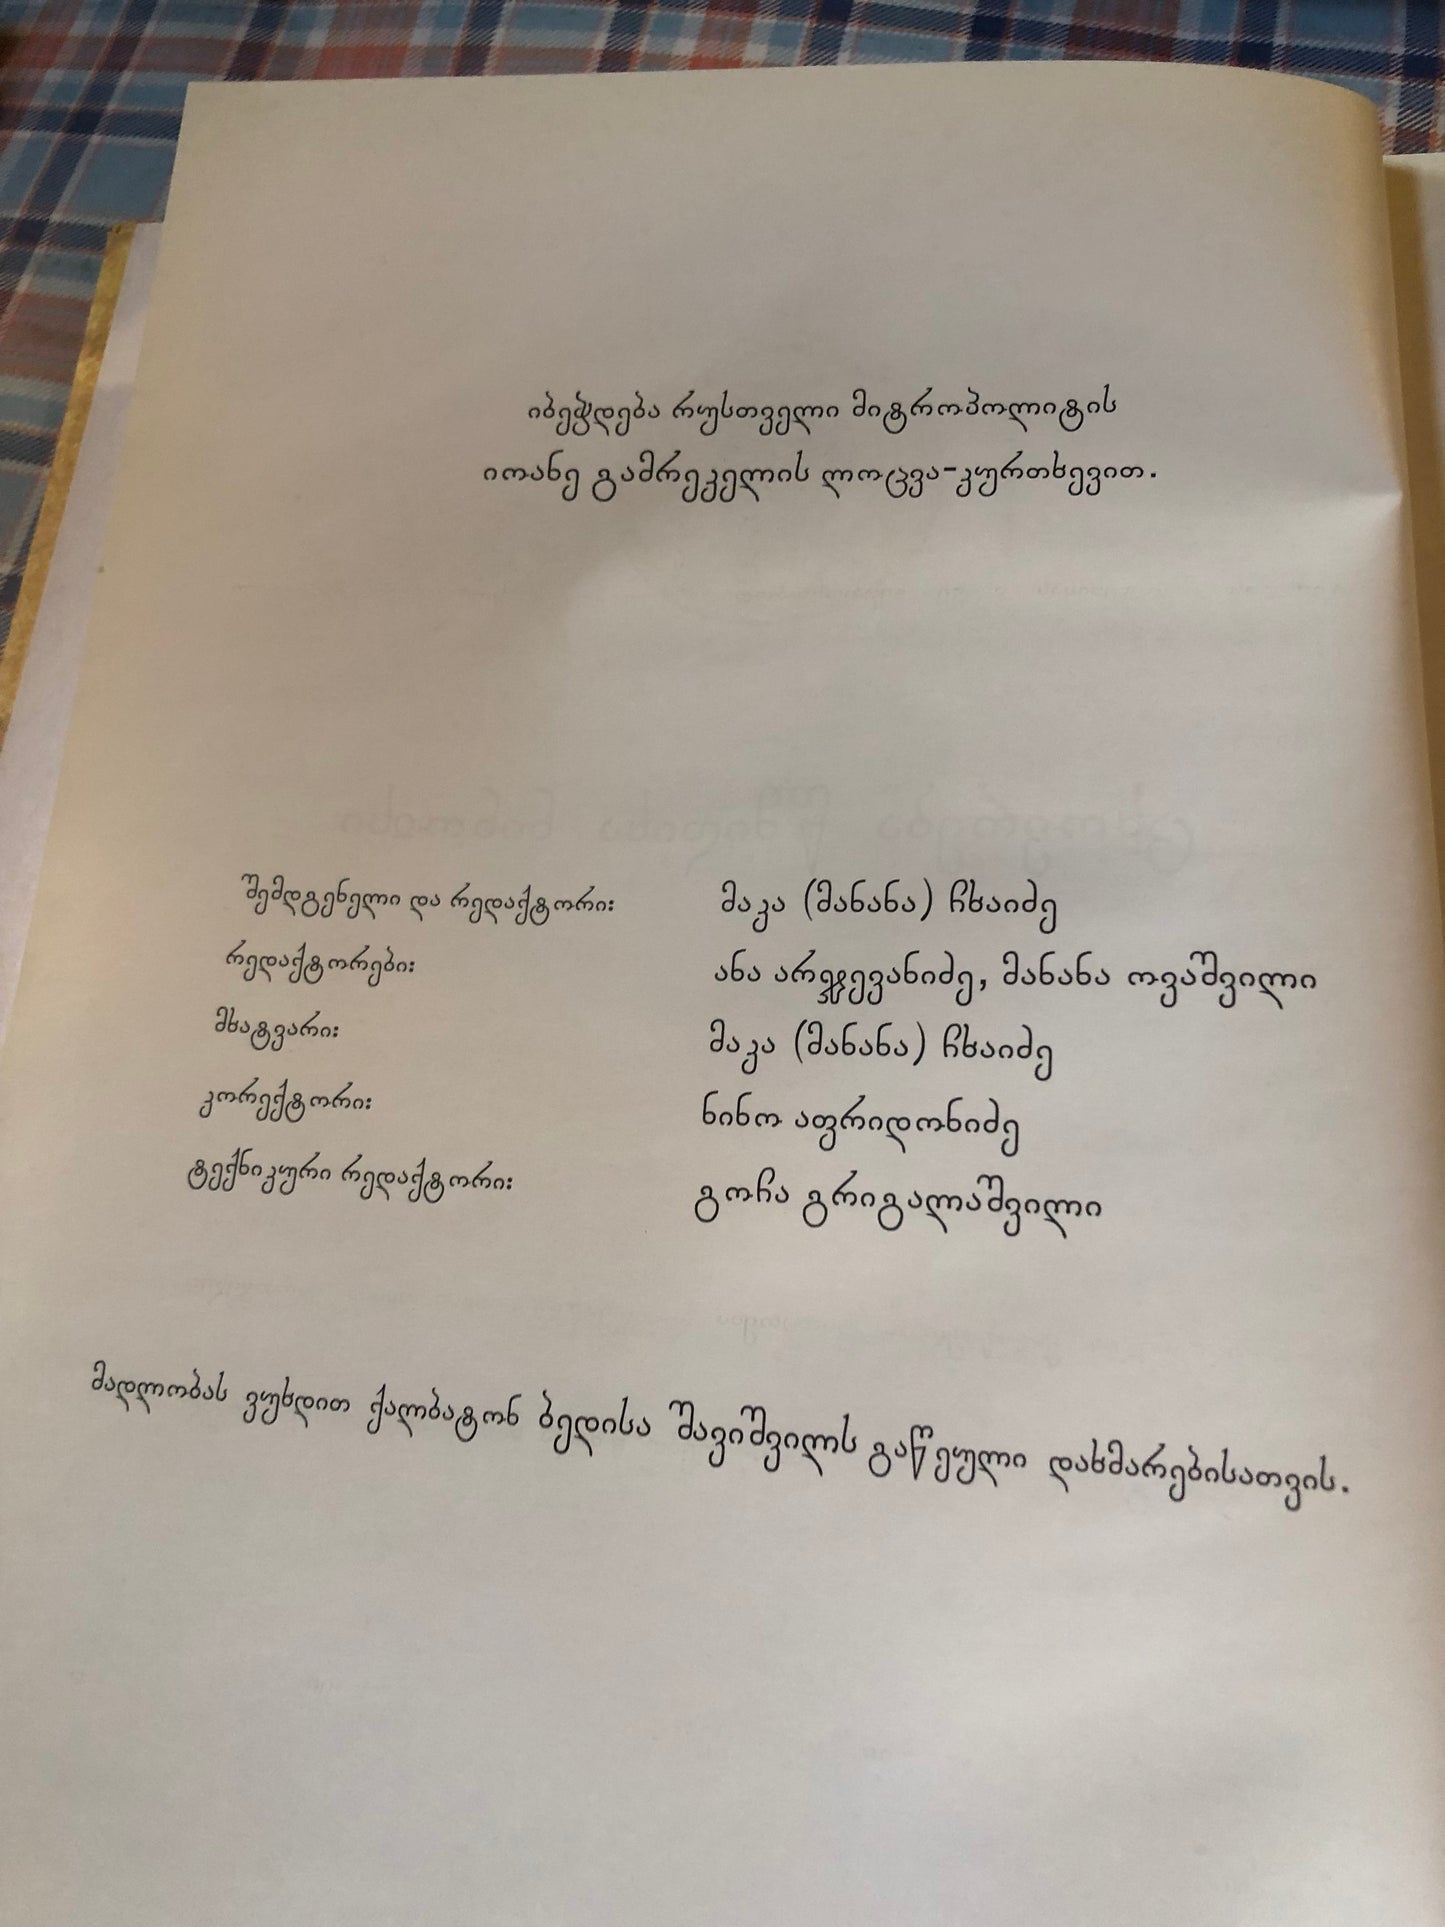 იბეჭდება რუსთველი მიტროპოლიტის
იოანე გამრეკელის ლოცვა-კურთხევით.
შემდგენელი და რედაქტორი: მაკა (მანანა) ჩხაიძე
რედაქტორები: ანა არეშევანიძე, მანანა ოვაშვილი
მხატვარი: მაკა (მანანა) ჩხაიძე
კორექტორი: ნინო აფრიდონიძე
ტექნიკური რედაქტორი: გოჩა გრიგალაშვილი
მადლობას ვუხდით ქალბატონ ბედისა შავიშვილს გაწეული დახმარებისათვის.